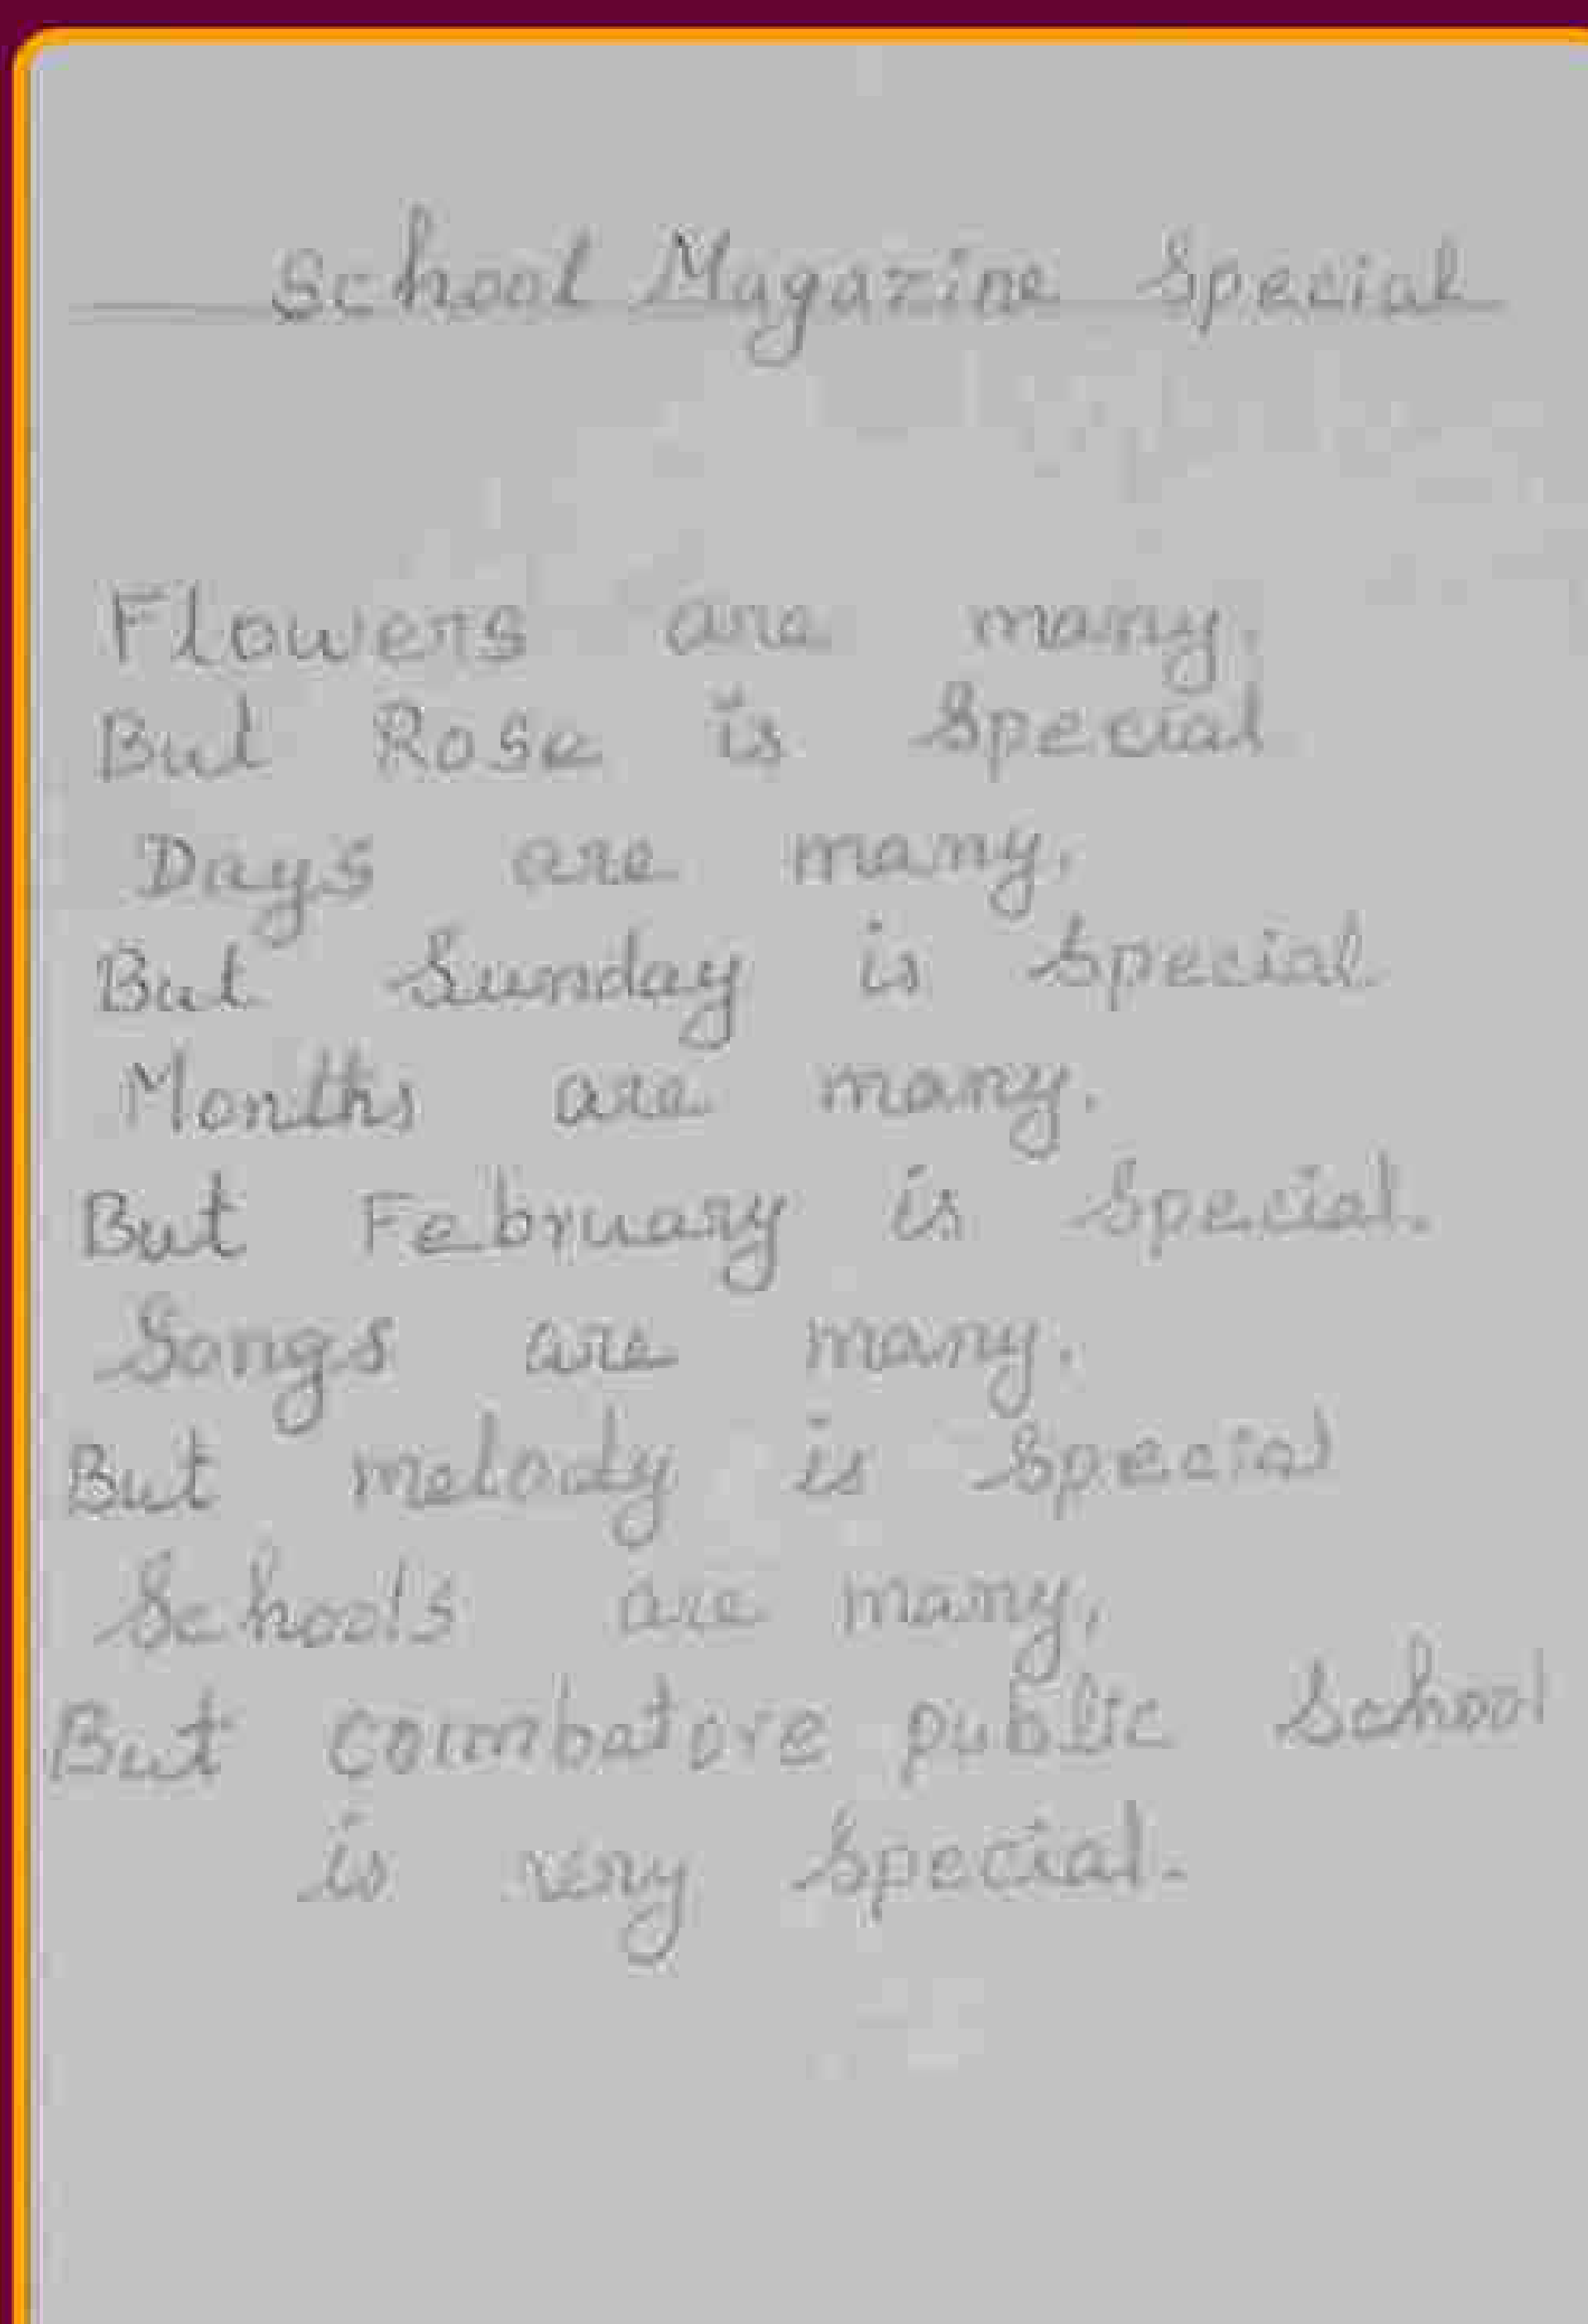 School Magazine Special
Flowers are many.
But Rose is Special
Days are many.
But Sunday is Special.
Months are many.
But February is Special.
Songs are many.
But melody is Special
Schools are many,
But coimbatore public School
is very Special.